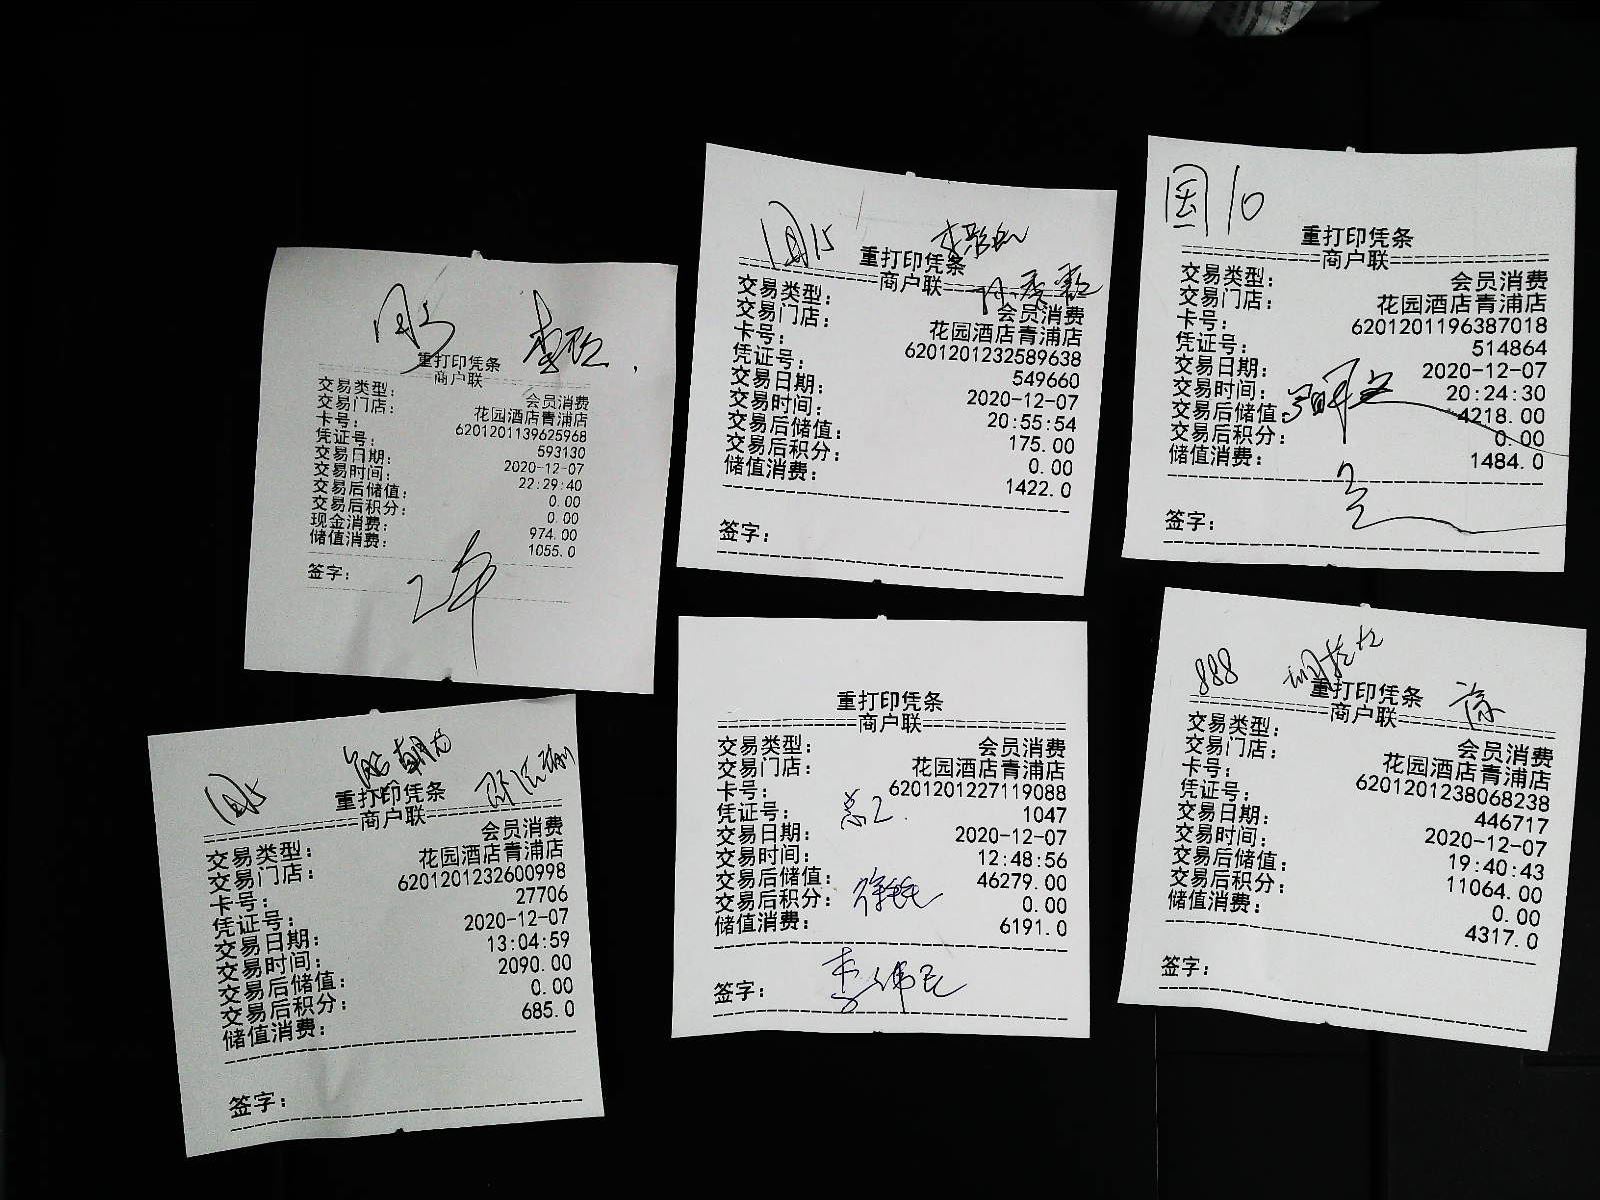 重打印凭条
商户联
交易类型： 会员消费
交易门店： 花园酒店青浦店
卡号： 6201201139625968
凭证号： 593130
交易日期： 2020-12-07
交易时间： 22:29:40
交易后储值： 0.00
交易后积分： 0.00
现金消费： 974.00
储值消费： 1055.0
签字：
15
重打印凭条
商户联
交易类型： 会员消费
交易门店： 花园酒店青浦店
卡号： 6201201232589638
凭证号： 549660
交易日期： 2020-12-07
交易时间： 20:55:54
交易后储值： 175.00
交易后积分： 0.00
储值消费： 1422.0
签字：
10
重打印凭条
商户联
交易类型： 会员消费
交易门店： 花园酒店青浦店
卡号： 6201201196387018
凭证号： 514864
交易日期： 2020-12-07
交易时间： 20:24:30
交易后储值： 4218.00
交易后积分： 0.00
储值消费： 1484.0
签字：
重打印凭条
商户联
交易类型： 会员消费
交易门店： 花园酒店青浦店
卡号： 6201201232600998
凭证号： 27706
交易日期： 2020-12-07
交易时间： 13:04:59
交易后储值： 2090.00
交易后积分： 0.00
储值消费： 685.0
签字：
重打印凭条
商户联
交易类型： 会员消费
交易门店： 花园酒店青浦店
卡号： 6201201227119088
凭证号： 1047
交易日期： 2020-12-07
交易时间： 12:48:56
交易后储值： 46279.00
交易后积分： 0.00
储值消费： 6191.0
签字： 李伟民
888
重打印凭条
商户联
交易类型： 会员消费
交易门店： 花园酒店青浦店
卡号： 6201201238068238
凭证号： 446717
交易日期： 2020-12-07
交易时间： 19:40:43
交易后储值： 11064.00
交易后积分： 0.00
储值消费： 4317.0
签字：